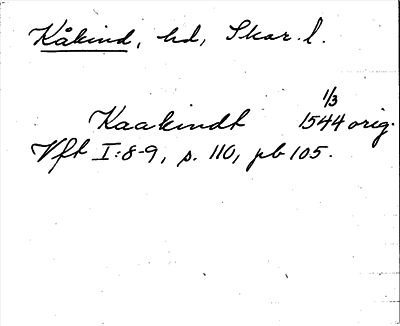 Kåkind, hd, Skar. l.
Kaakindt 1/3 1544 orig.
Vft I:8-9, s. 110, pb 105.